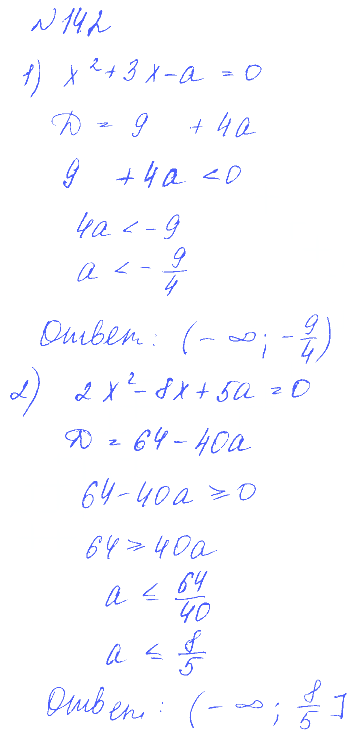 N 142
1) x² + 3x - a = 0
D = 9 + 4a
9 + 4a < 0
4a < -9
a < -9/4
Ответ: (-∞; -9/4)
2) 2x² - 8x + 5a = 0
D = 64 - 40a
64 - 40a ≥ 0
64 ≥ 40a
a ≤ 64/40
a ≤ 8/5
Ответ: (-∞; 8/5]